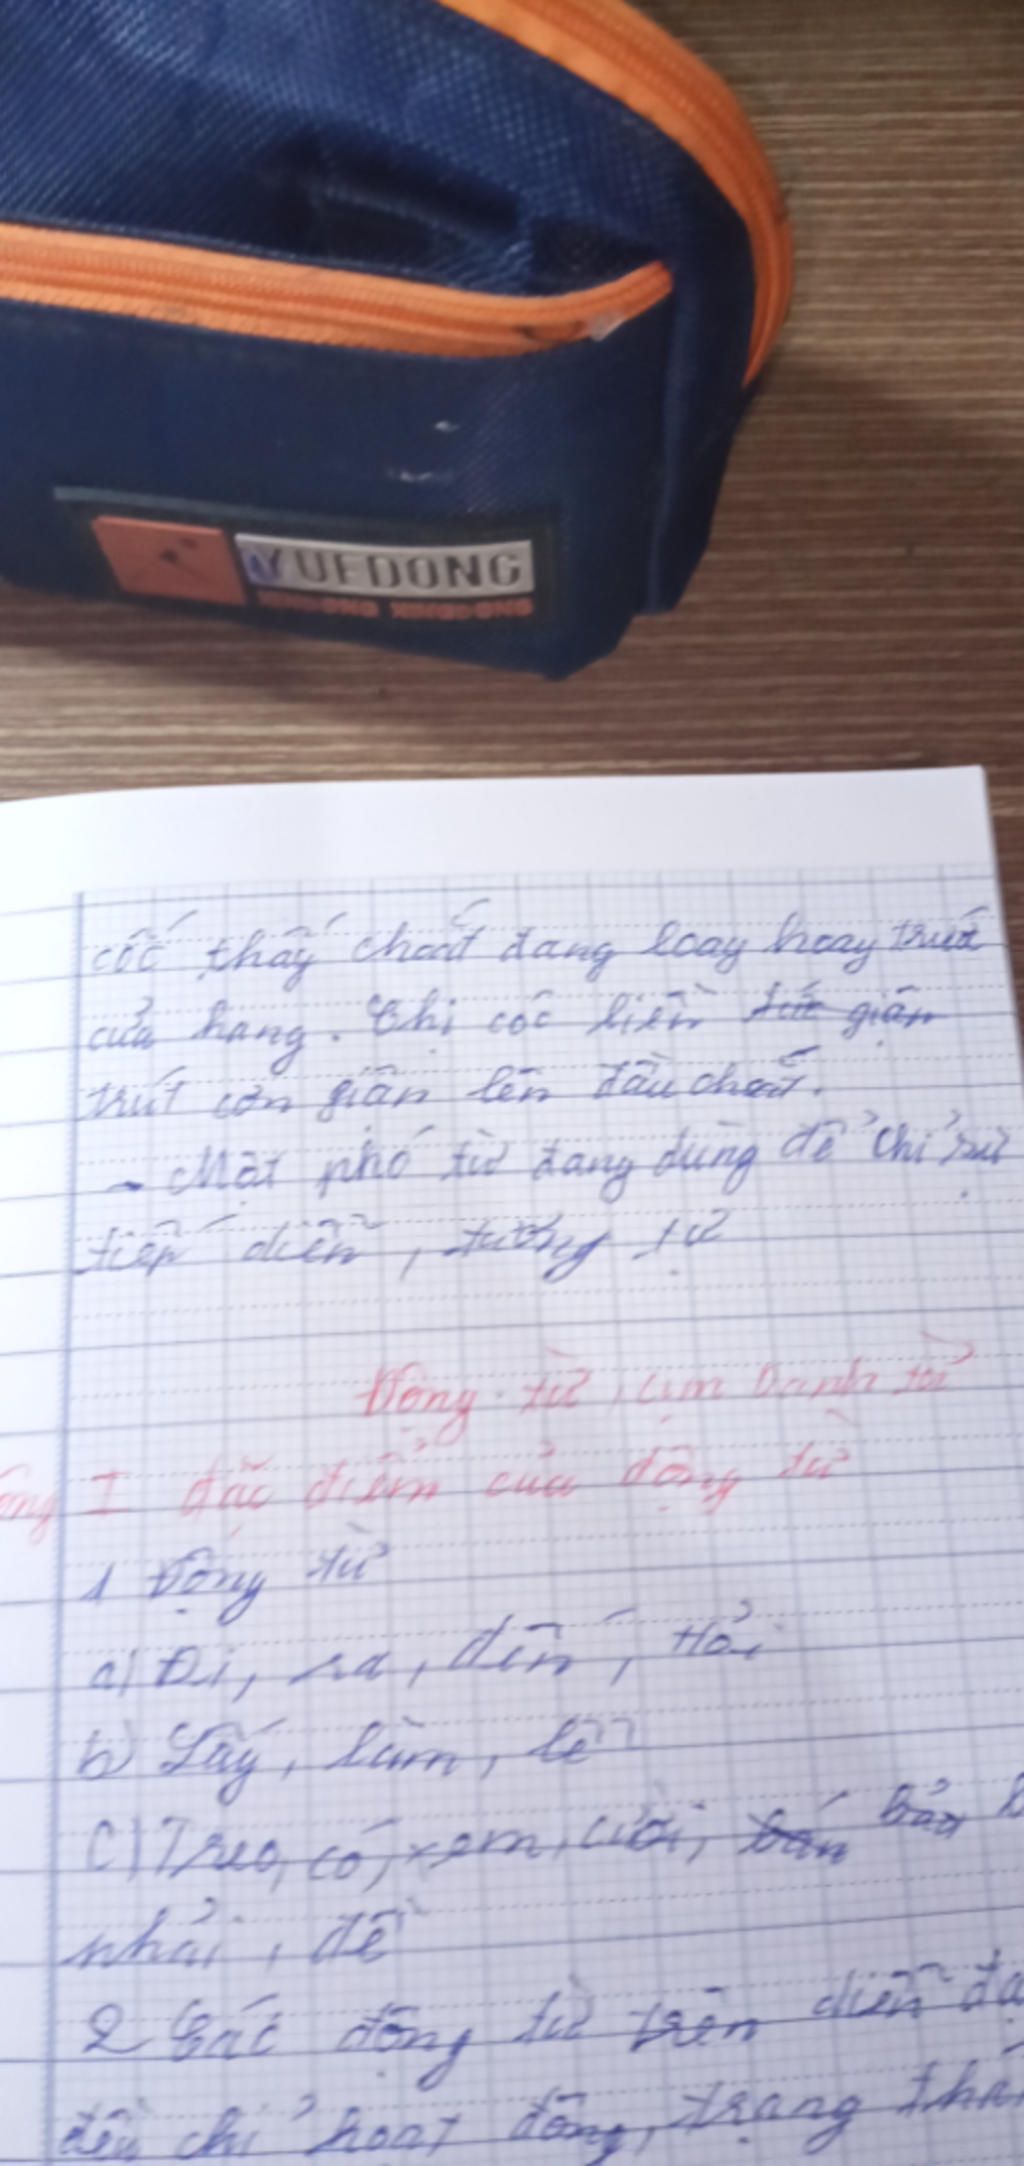 YUEDONG
cốc thấy choắt đang loay hoay trước
cửa hang. Chị cốc liền tức giận
trút cơn giận lên đầu choắt.
- Một phó từ đang dùng để chỉ sự
tiếp diễn, tương tự
Động từ, cụm Danh từ
I đặc điểm của động từ
1 Động từ
a) Đi, ra, đến, Hỏi
b) Lấy, làm, lễ
C) Treo, có, xem, cười, bán bảo
phải, để
2 Các động từ trên diễn đạ
đều chỉ hoạt động, trạng thá